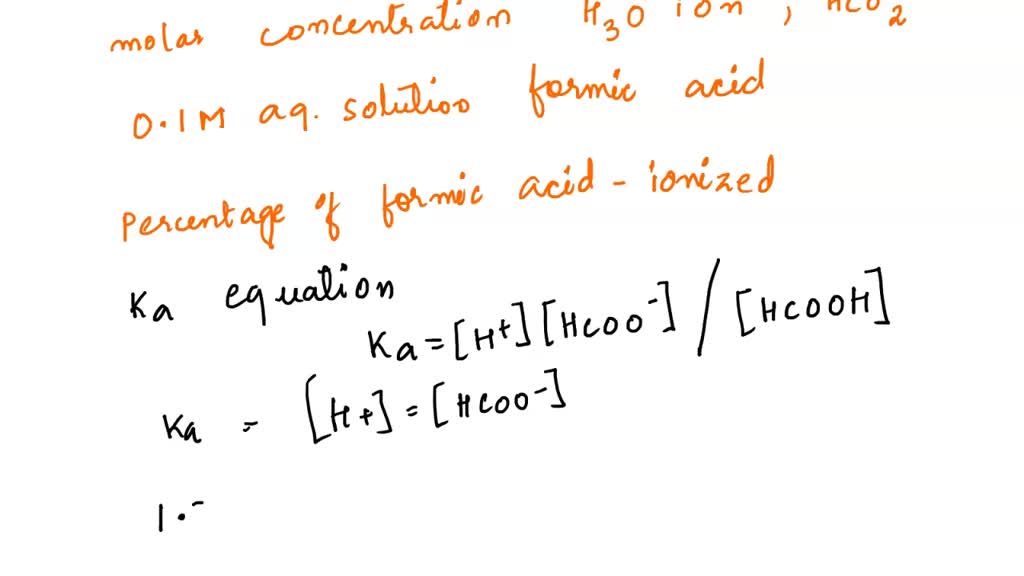 molar concentration H3O ion, HCO2
0.1M aq. solution formic acid
Percentage of formic acid - ionized
Ka equation
Ka = [H+][HCOO-] / [HCOOH]
Ka = [H+] = [HCOO-]
1.